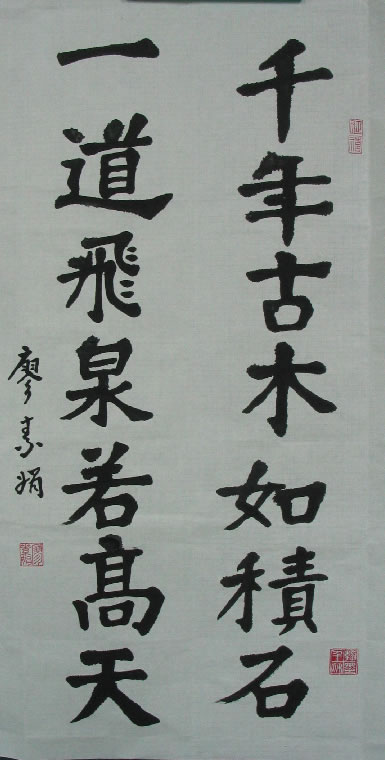 千年古木如積石
一道飛泉若髙天
廖素娟